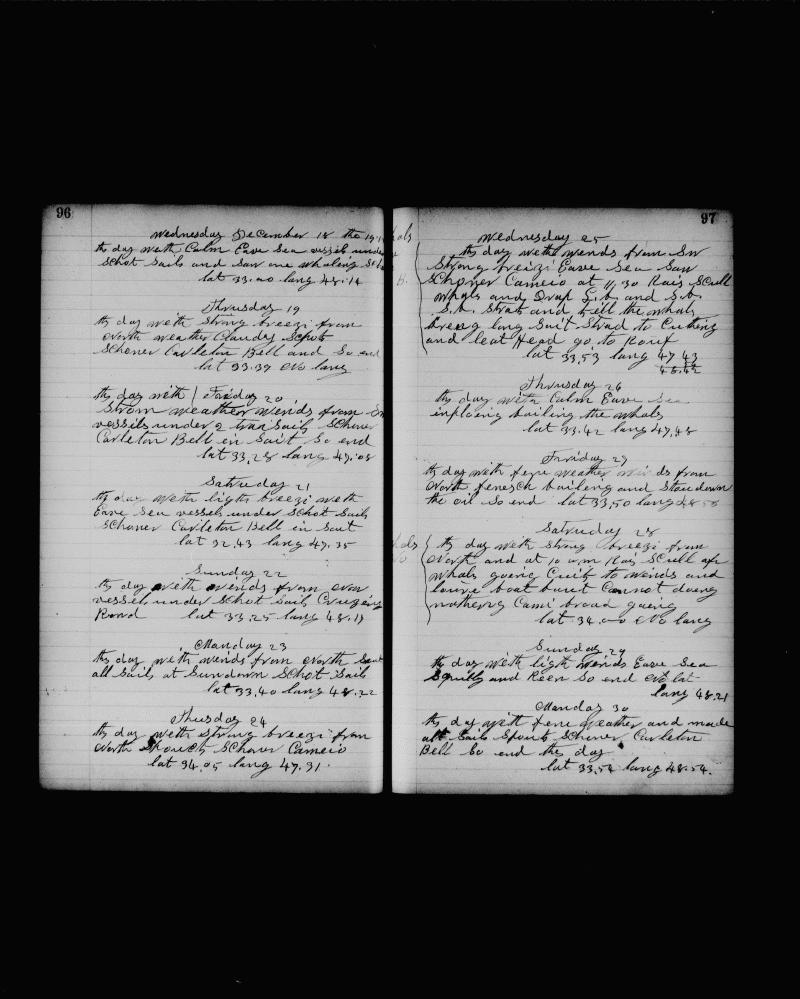 96
Wednesday December 18 the 19
th day with Calm Eave Sea vessels under
Schot Sails and Saw one whaling
lat 33.20 lang 48.14
Thrusday 19
th day with Strong breezi from
North weather Claudy Schots
Schoner Carleton Bell and So end
lat 33.39 No lang
th day with Friday 20
Strom weather Winds from
vessels under 2 trai Sails Schoner
Carleton Bell in Sait So end
lat 33,28 lang 47.08
Satruday 21
th day with ligth breezi with
Eave Sea vessels under Schot Sails
Schoner Carleton Bell in Sait
lat 32.43 lang 47.35
Sunday 22
th day with winds from
vessels under Schot Sails Cruzing
Rond lat 33.25 lang 48.19
Manday 23
th day with winds from North
all Sails at Sundown Schot Sails
lat 33.40 lang 48.22
Thusday 24
th day with Strong breezi from
North Spouch Schoner Cameio
lat 34.05 lang 47.31.
97
Wednesday 25
th day with wends from Sw
Strong breizi Eave Sea Saw
Schoner Cameio at 11,30 Rais Scull
whals and Drap S.b. and S.b.
S.b. Strab and kill the whals
breng lang Sait Strad to Cuthing
and leat Head go to Rouf
lat 33,53 lang 47 43
48.42
Thrusday 26
th day with Calm Eave Sea
inploeing boiling the whals
lat 33.42 lang 47,48
Friday 27
th day with feni weather winds from
North fenesch boileing and Stou down
the oil So end lat 33,50 lang 48 58
Satruday 28
th day with Strong breezi from
North and at 10 a.m Rais Scull
whals goeing Cuib to winds and
louire boat bout Cannot doeng
nothering Cami broad goeing
lat 34.00 No lang
Sunday 29
th day with ligth Wends Eave Sea
Squilly and Reen So end No lat
lang 48,21
Manday 30
th day with feni weather and made
all Sails Spouk Schoner Carleton
Bell So end the day
lat 33,54 lang 48.54.